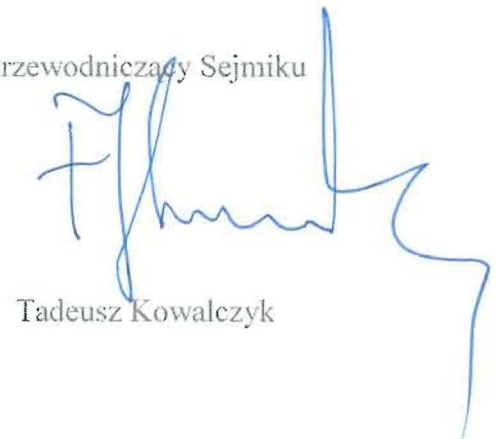 rzewodniczący Sejmiku
Tadeusz Kowalczyk